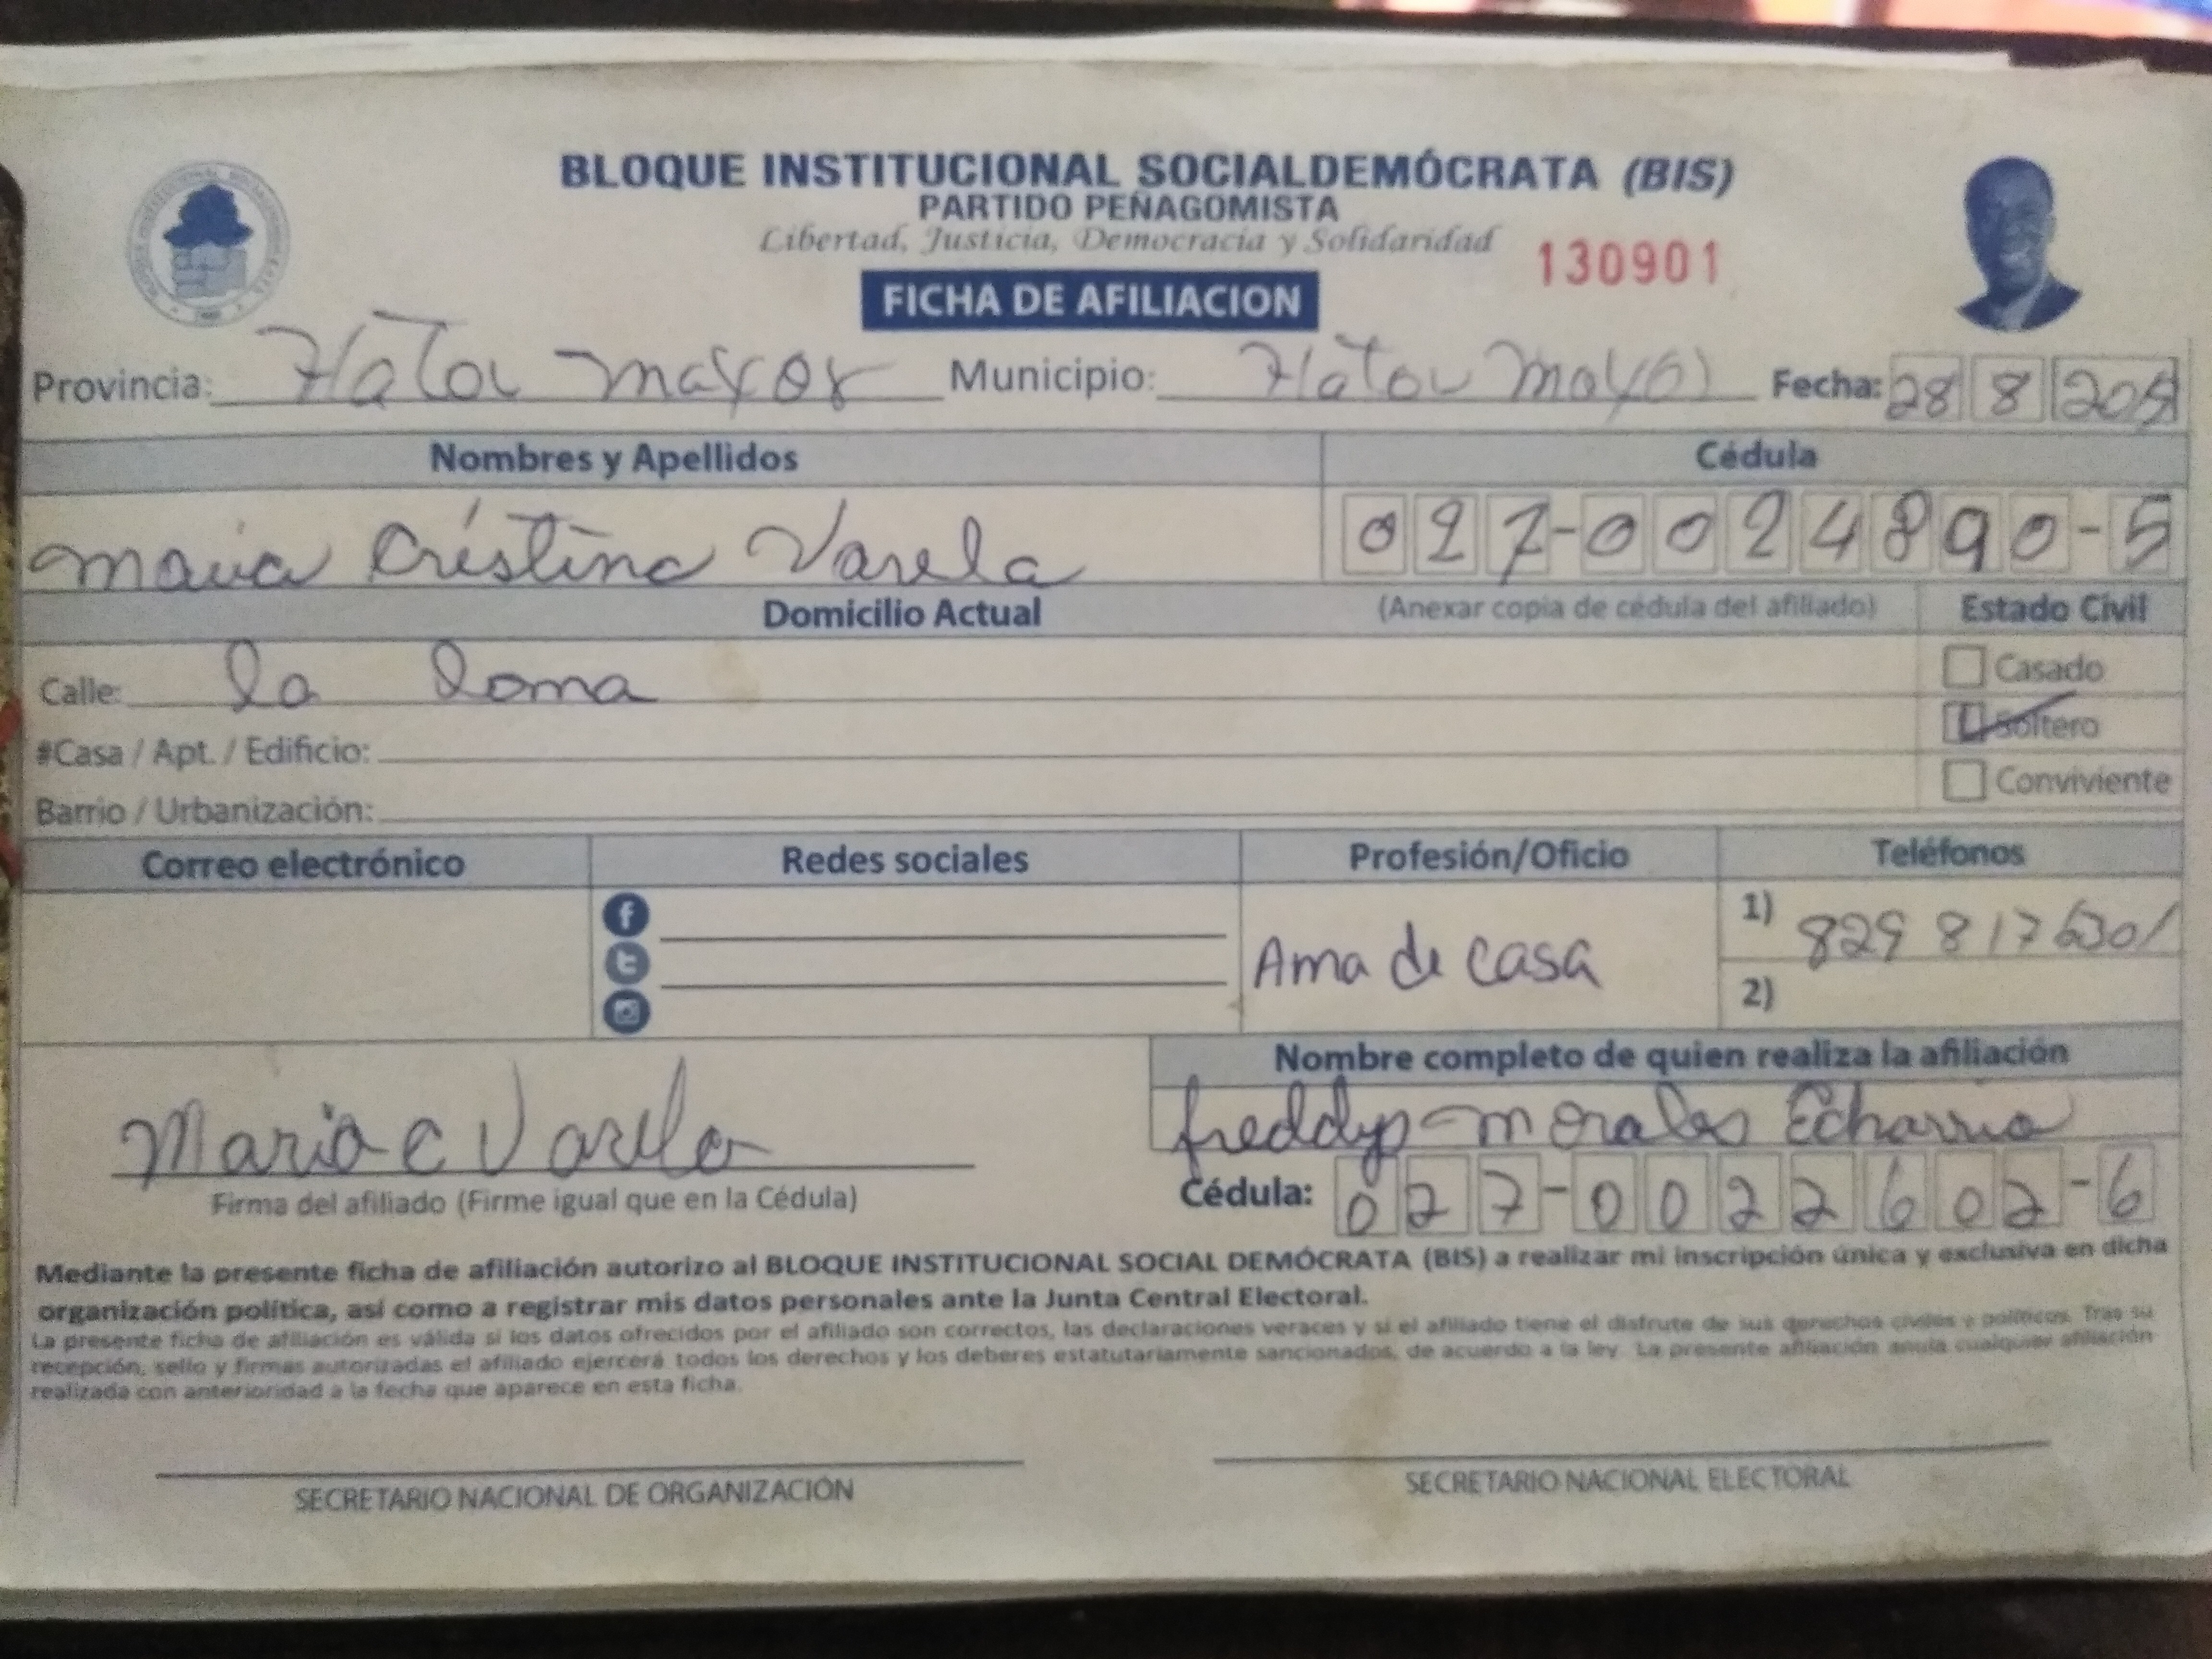 BLOQUE INSTITUCIONAL SOCIALDEMÓCRATA (BIS)
PARTIDO PEÑAGOMISTA
Libertad, Justicia, Democracia y Solidaridad
130901
FICHA DE AFILIACION
Provincia: Hator mayor Municipio: Hator mayor Fecha: 28 8
Nombres y Apellidos Cédula
Maria Cristina Varela 027-0024890-5
Domicilio Actual (Anexar copia de cédula del afiliado) Estado Civil
Calle: la loma Casado
#Casa / Apt. / Edificio: Soltero
Barrio / Urbanización: Conviviente
Correo electrónico Redes sociales Profesión/Oficio Teléfonos
Ama de casa
1) 829 817
2)
Nombre completo de quien realiza la afiliación
freddys-morales Echarria
Maria C Varela
Firma del afiliado (Firme igual que en la Cédula)
Cédula: 027-0022602-6
Mediante la presente ficha de afiliación autorizo al BLOQUE INSTITUCIONAL SOCIAL DEMÓCRATA (BIS) a realizar mi inscripción única y exclusiva en dicha
organización política, así como a registrar mis datos personales ante la Junta Central Electoral.
La presente ficha de afiliación es válida si los datos ofrecidos por el afiliado son correctos, las declaraciones veraces y si el afiliado tiene el disfrute de sus derechos civiles y políticos. Tras su
recepción, sello y firmas autorizadas el afiliado ejercerá todos los derechos y los deberes estatutariamente sancionados, de acuerdo a la ley. La presente afiliación anula cualquier afiliación
realizada con anterioridad a la fecha que aparece en esta ficha.
SECRETARIO NACIONAL DE ORGANIZACIÓN SECRETARIO NACIONAL ELECTORAL